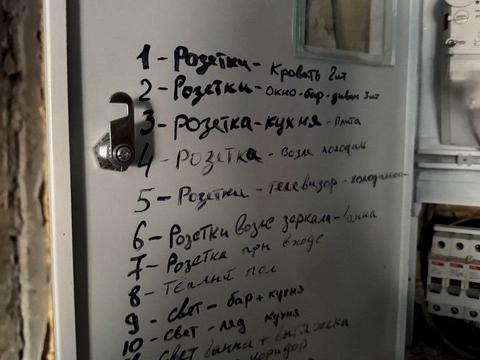 1 - Розетки - Кровать 2шт
2 - Розетки - окно - бар - диван 3шт
3 - Розетка - кухня - Плита
4 - Розетка - Возле холодиль
5 - Розетки - телевизор - холодильник
6 - Розетки возле зеркала - ванна
7 - Розетка при входе
8 - Тёплый пол
9 - свет - бар + кухня
10 - свет - лед кухня
свет ванна + вытяжка
коридор